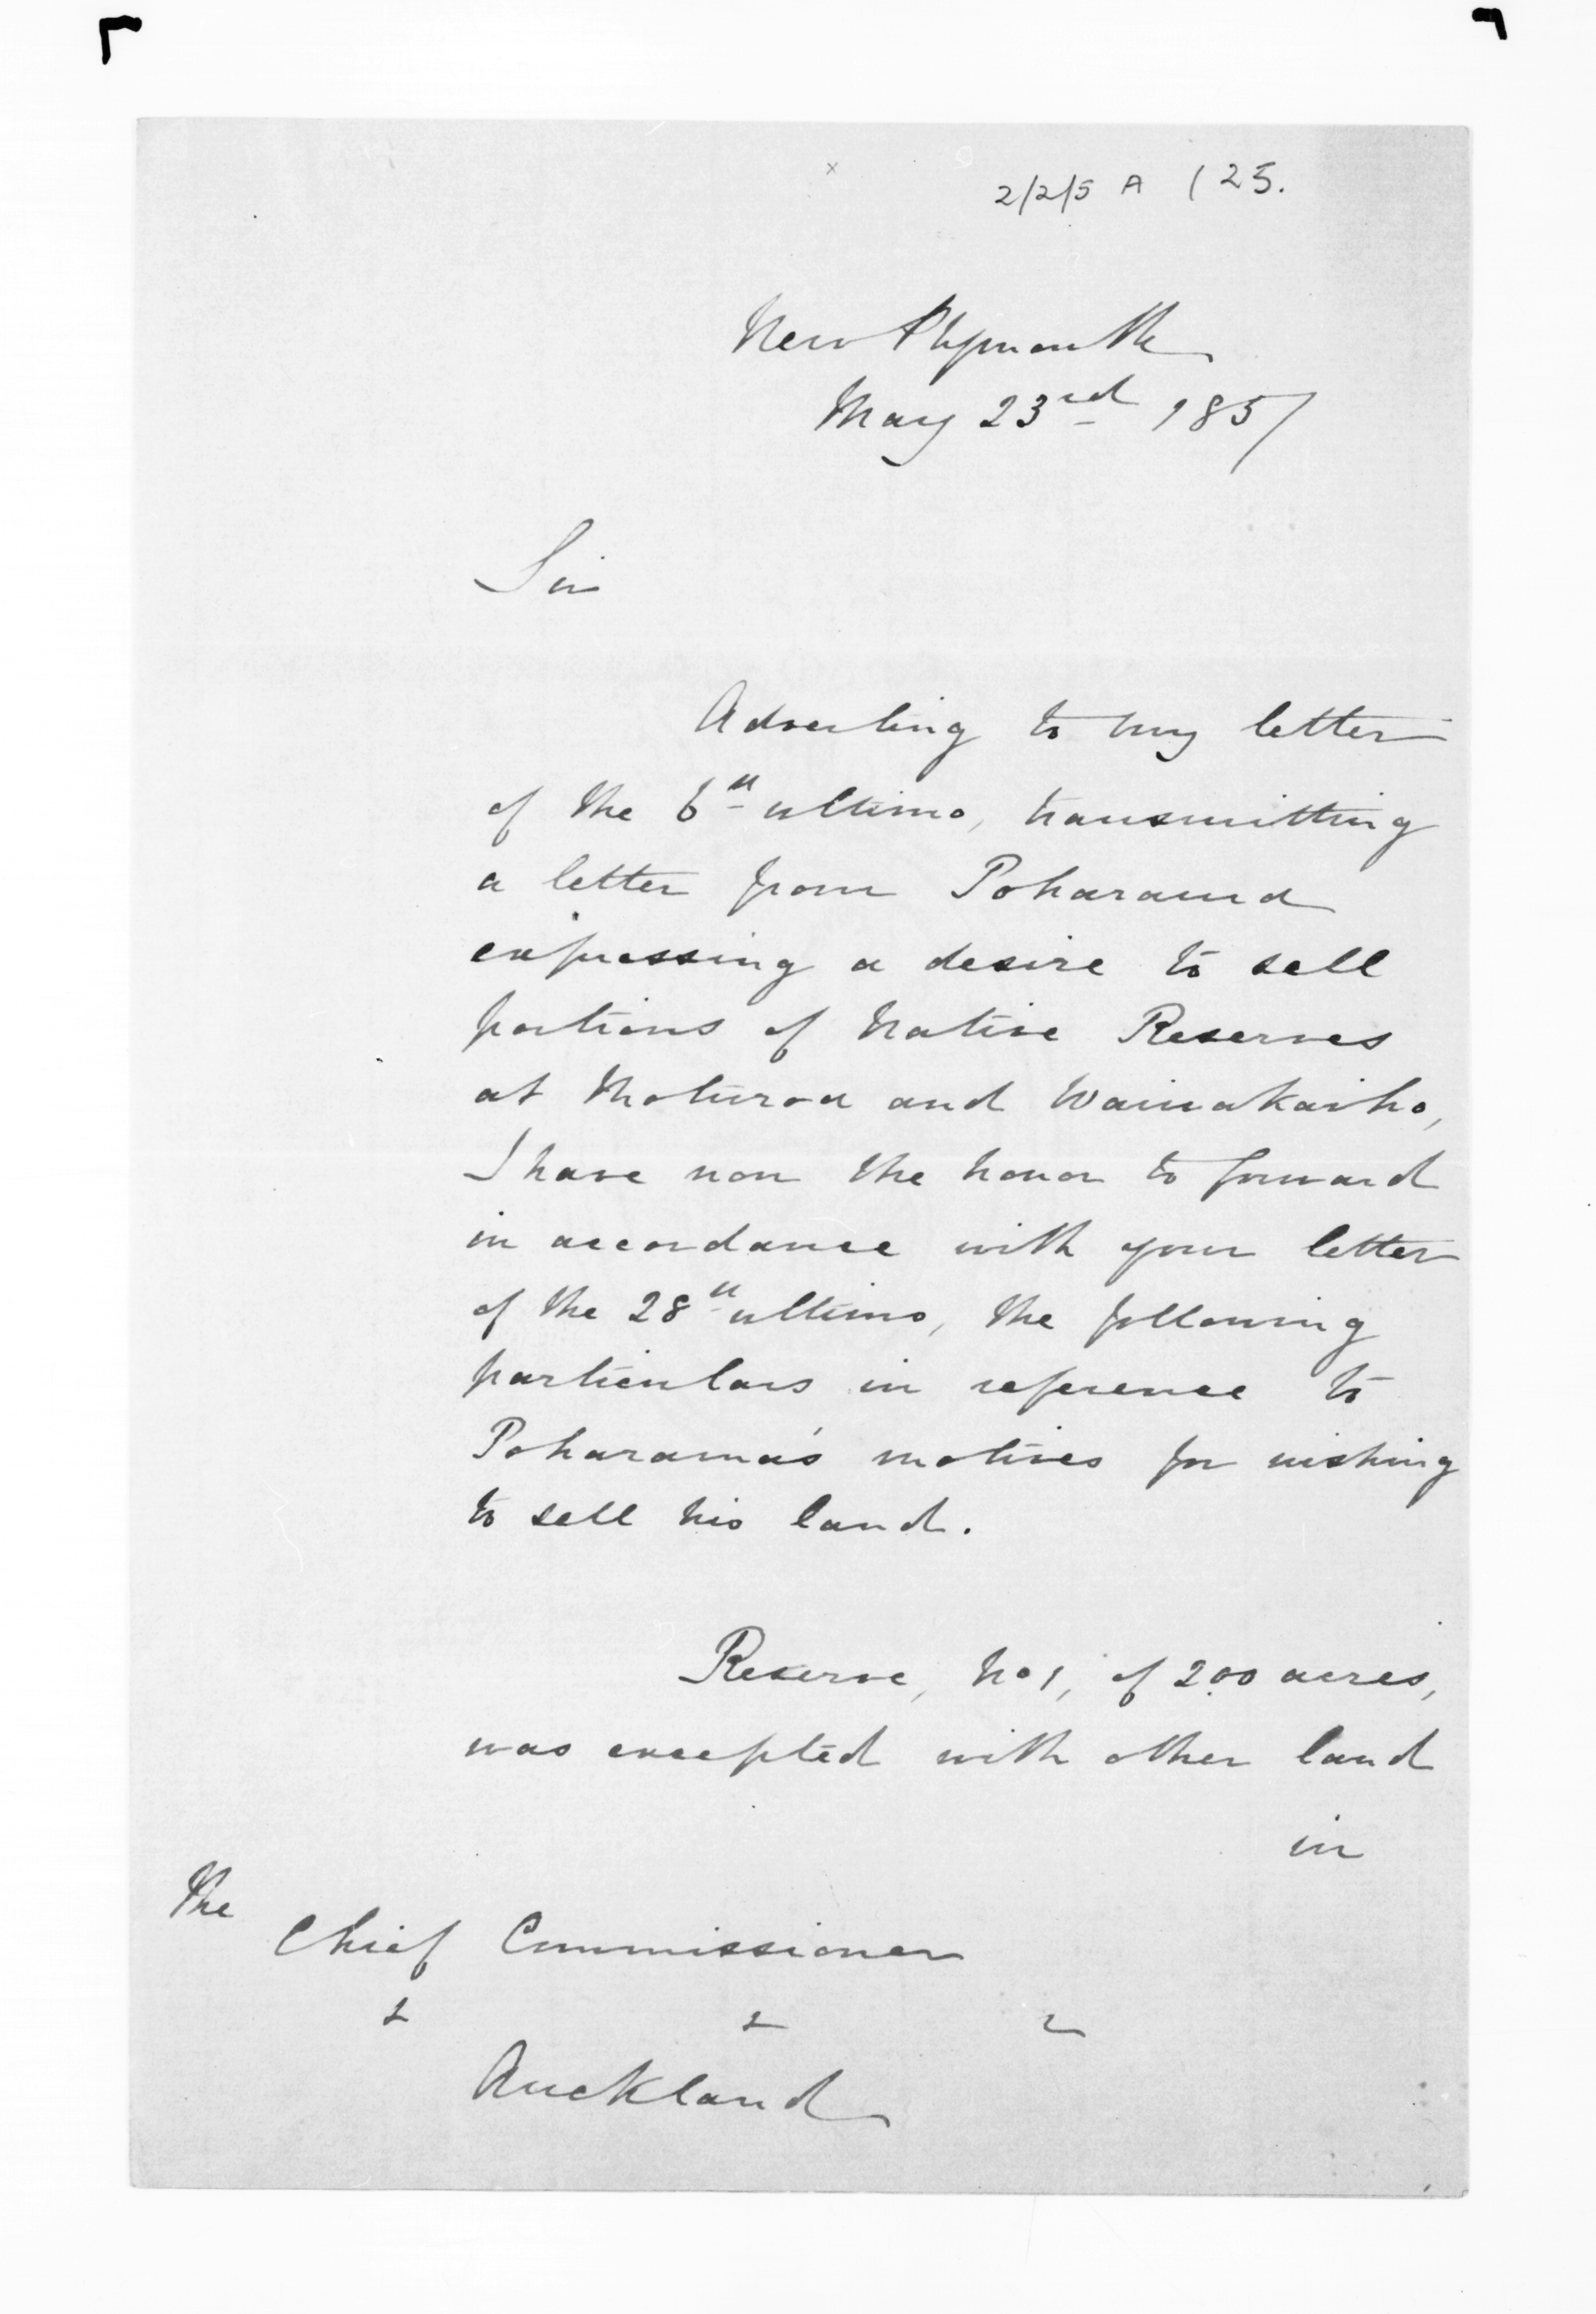 2/2/5 A (25.
New Plymouth
May 23rd 1857
Sir
Adverting to my letter
of the 6th ultimo, transmitting
a letter from Poharama
expressing a desire to sell
portions of Native Reserves
at Moturoa and Waiwakaiho,
I have now the honor to forward
in accordance with your letter
of the 28th ultimo, the following
particulars in reference to
Poharama's motives for wishing
to sell his land.
Reserve, No 1, of 200 acres,
was excepted with other land
in
The
Chief Commissioner
& & &
Auckland